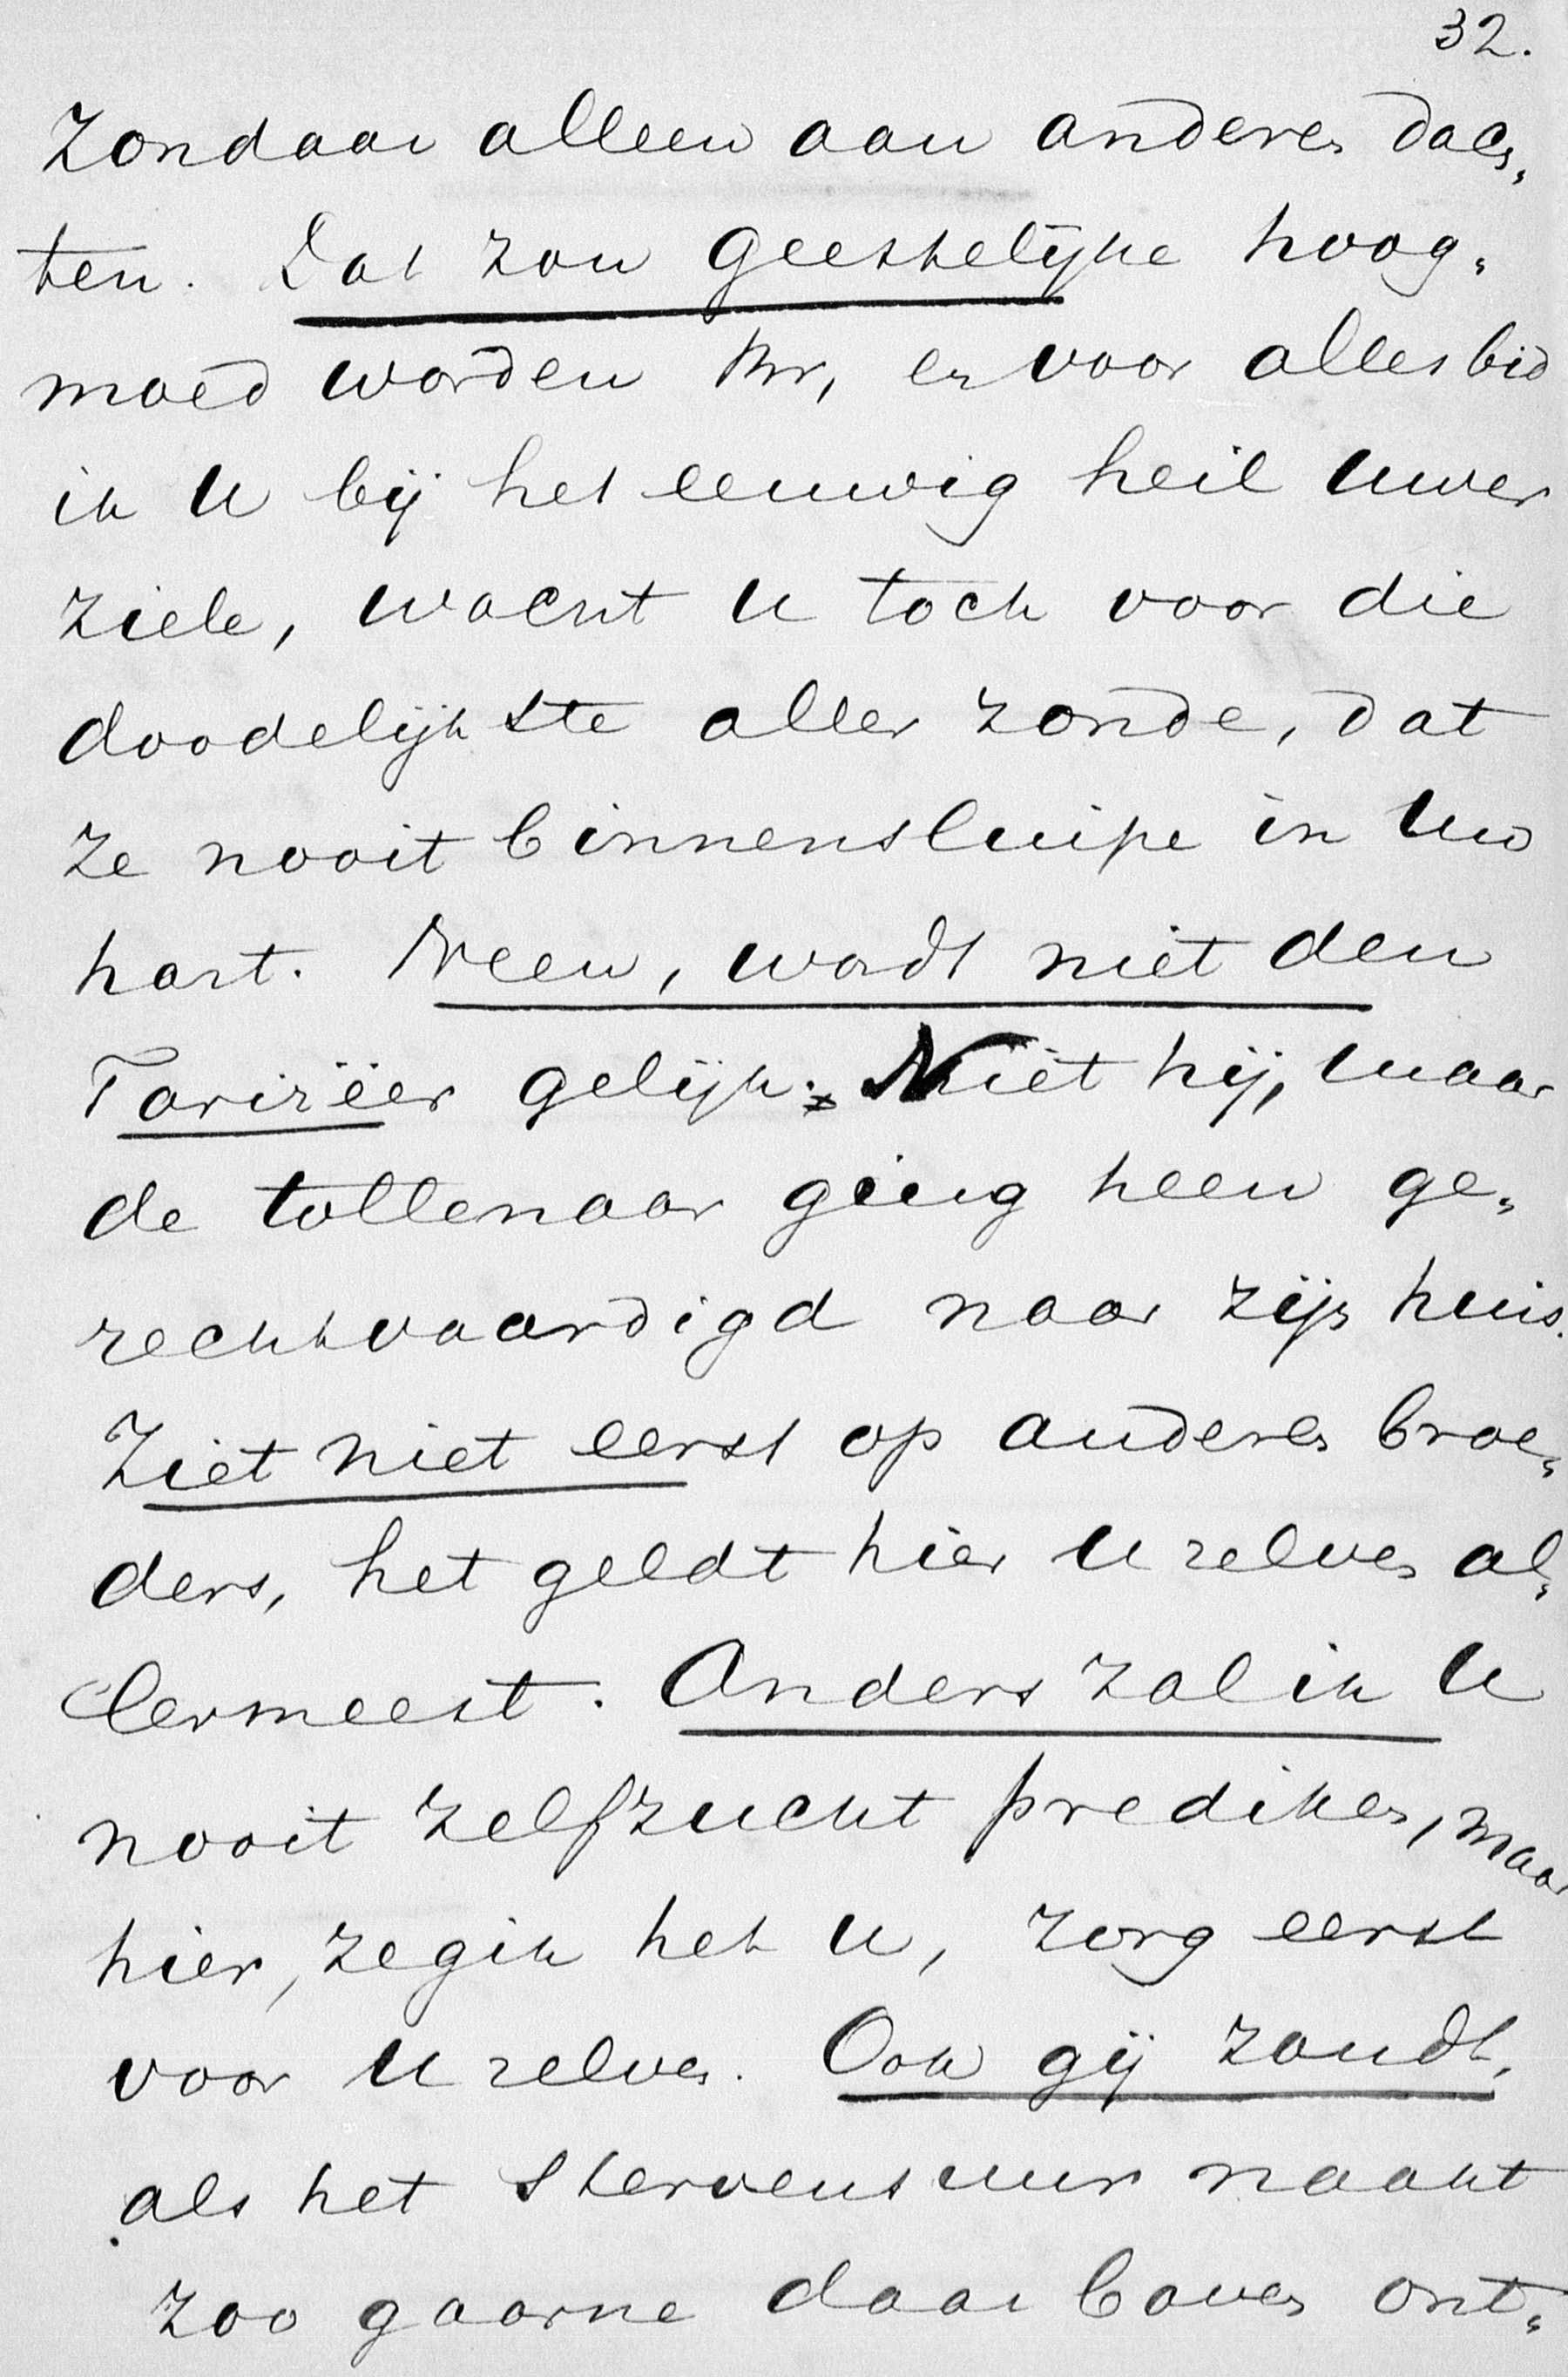 32.
Zondaar alleen aan anderen dach-
ten. Dat zou geestelijke hoog-
moed worden Br, en voor alles bid
ik U bij het eeuwig heil uwer
ziele, wacht U toch voor die
doodelijkste aller zonde, dat
ze nooit binnensluipe in Uw
hart. Neen, wordt niet den
Farizëer gelijk. Niet hij, maar
de tollenaar ging heen ge-
rechtvaardigd naar zijn huis.
Ziet niet eerst op anderen broe-
ders, het geldt hier U zelven al-
lermeest. Anders zal ik U
nooit zelfzucht prediken, maar
hier, zeg ik het U, zorg eerst
voor U zelven. Ook gij zoudt,
als het stervensuur naakt
zoo gaarne daar boven ont-